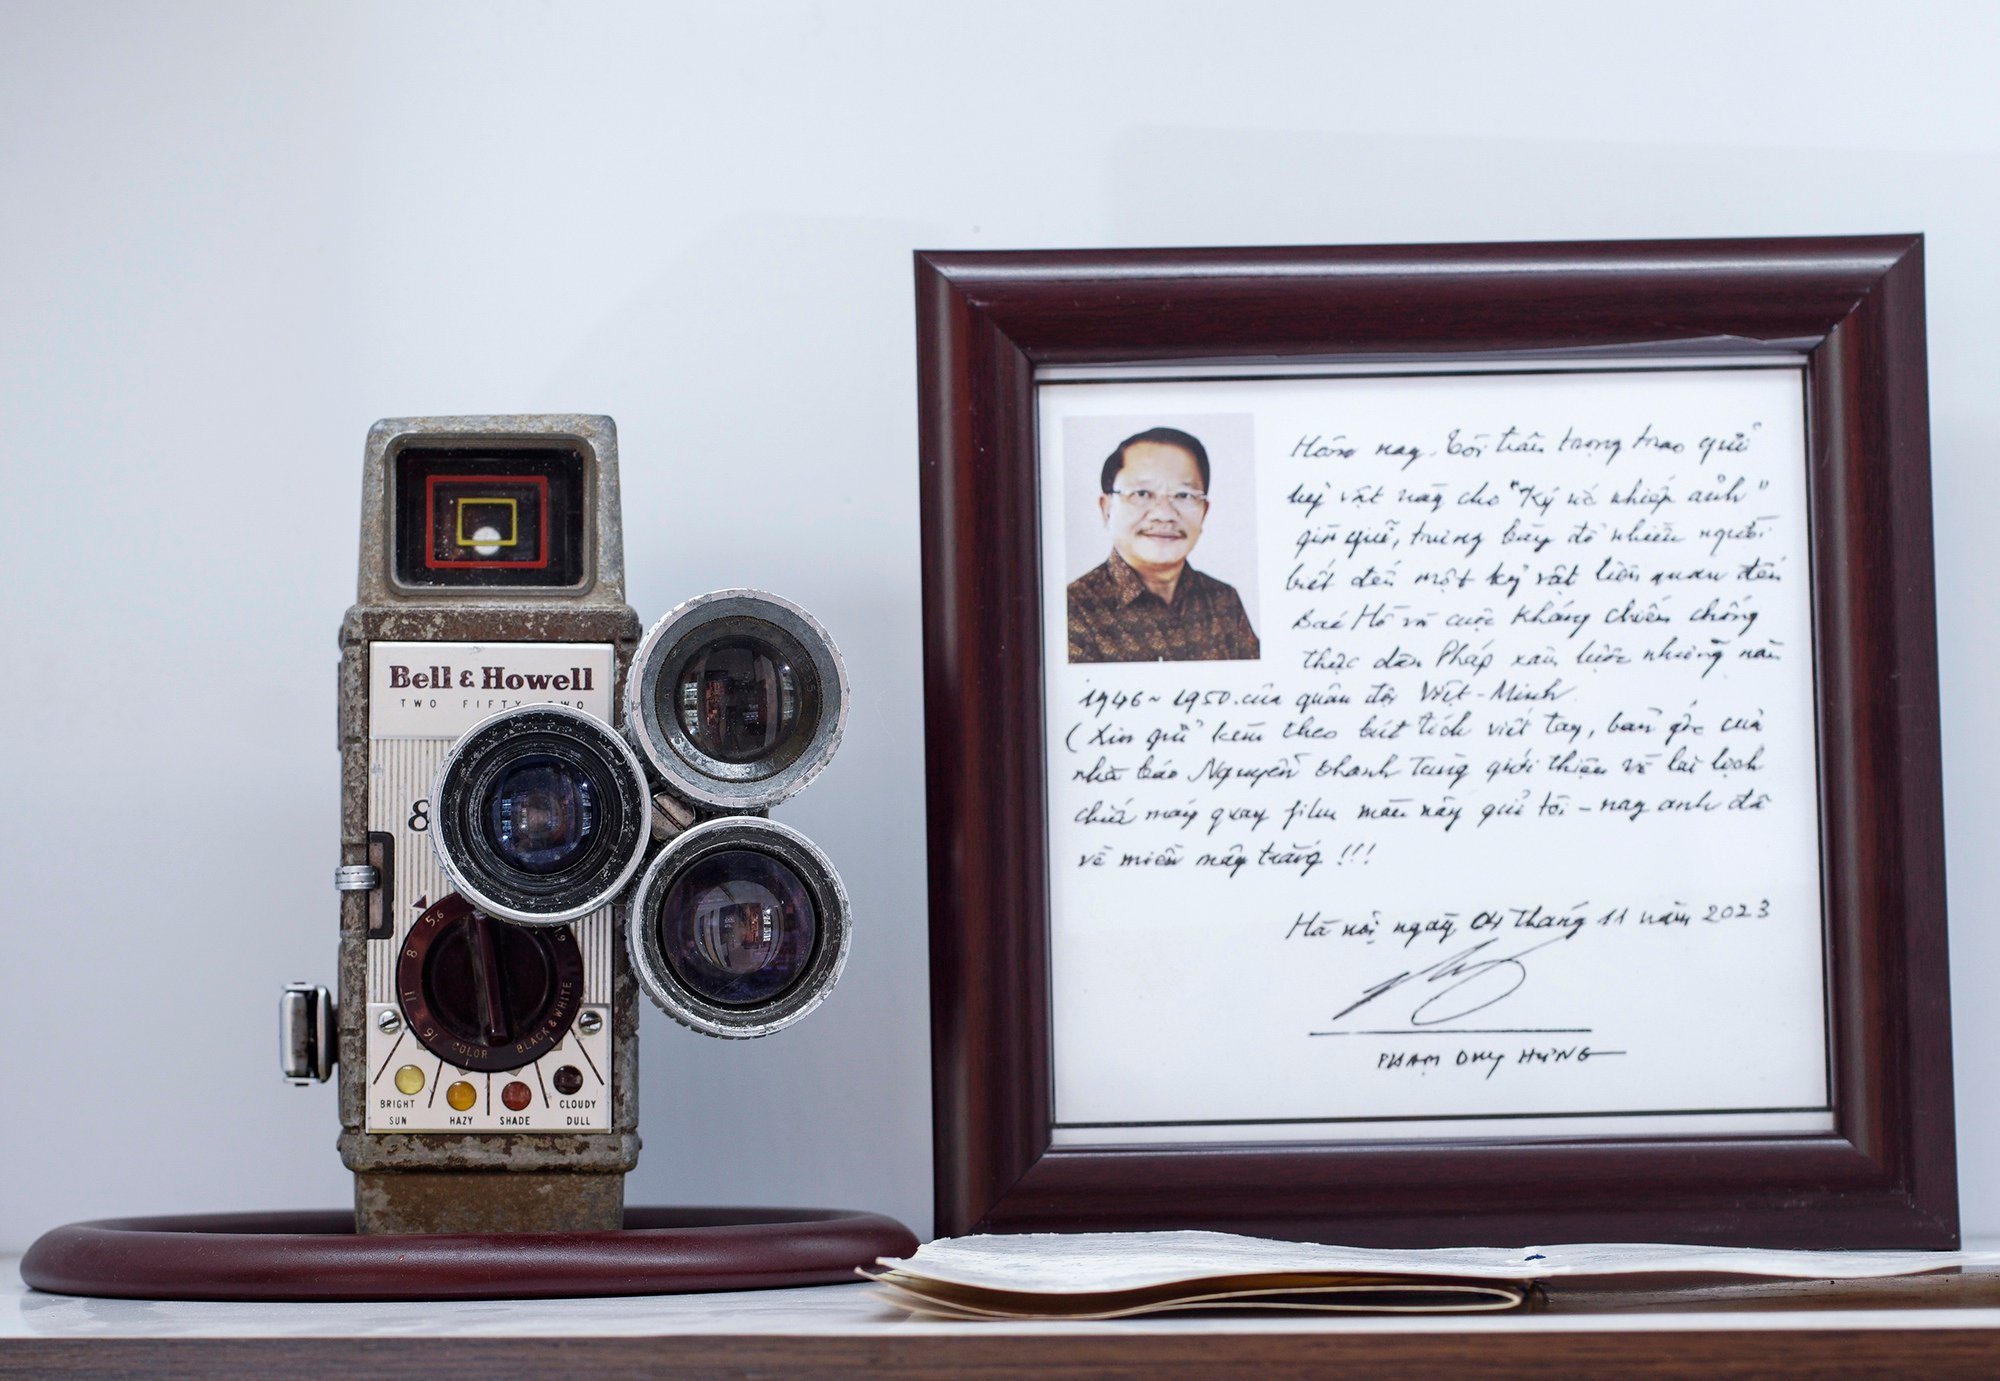 Bell & Howell
TWO FIFTY TWO
8
5.6
8
11
16
COLOR
BLACK & WHITE
BRIGHT
SUN
HAZY
SHADE
CLOUDY
DULL
Hôm nay, Tôi trân trọng trao gửi
kỷ vật này cho "Ký ức nhiếp ảnh"
gìn giữ, trưng bày để nhiều người
biết đến một kỷ vật liên quan đến
Bác Hồ và cuộc kháng chiến chống
thực dân Pháp xâm lược những năm
1946 ~ 1950 của quân đội Việt - Minh
(Xin gửi kèm theo bút tích viết tay, bản gốc của
nhà báo Nguyễn Thanh Tùng giới thiệu về lai lịch
chiếc máy quay film màu này gửi tôi - nay anh đã
về miền mây trắng !!!
Hà nội, ngày 04 tháng 11 năm 2023
PHẠM DUY HƯNG